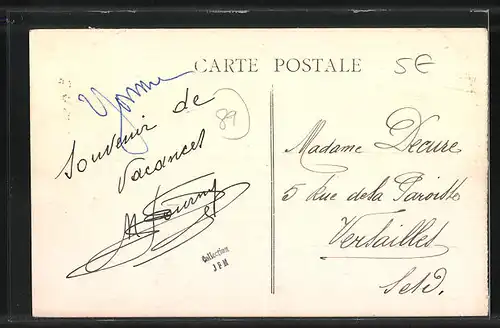 CARTE POSTALE
5€
Yonne
89
Souvenir de
Vacances
Collection
JFM
Madame Decure
5 Rue de la Paroisse
Versailles